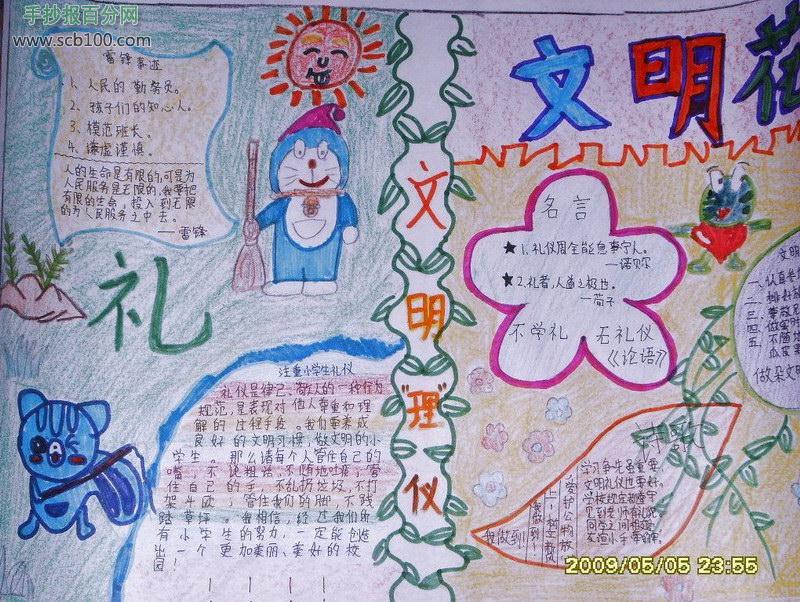 手抄报百分网
www.scb100.com
雷锋事迹
1、人民的勤务员。
2、孩子们的知心人。
3、模范班长。
4、谦虚谨慎。
人的生命是有限的,可是为
人民服务是无限的,我要把
有限的生命,投入到无限
的为人民服务之中去。
—雷锋
礼
注重小学生礼仪
礼仪是律己、敬人的一种行为
规范,是表现对他人尊重和理
解的过程手段。我们要养成
良好的文明习惯,做文明的小
学生。那么请每个人管住自己的
嘴,不说粗话,不随地吐痰;管
住自己的手,不乱扔垃圾,不打
架斗殴;管住我们的脚,不践
踏草坪。我相信,经过我们所
有小学生的努力,一定能创造
出一个更加美丽、美好的校
园!
文明"理"仪
文明花
名言
★1、礼仪周全能息事宁人。
—诺贝尔
★2、礼者,人道之极也。
—荀子
不学礼 无礼仪
《论语》
文明
一、认真
二、
三、
四、
五、不随地
瓜皮果
做朵文明
诗歌
学习争先最重要,
文明礼仪也要好。
学校规定都遵守
见到老师有礼貌
同学之间
我做到!
2009/05/05 23:55